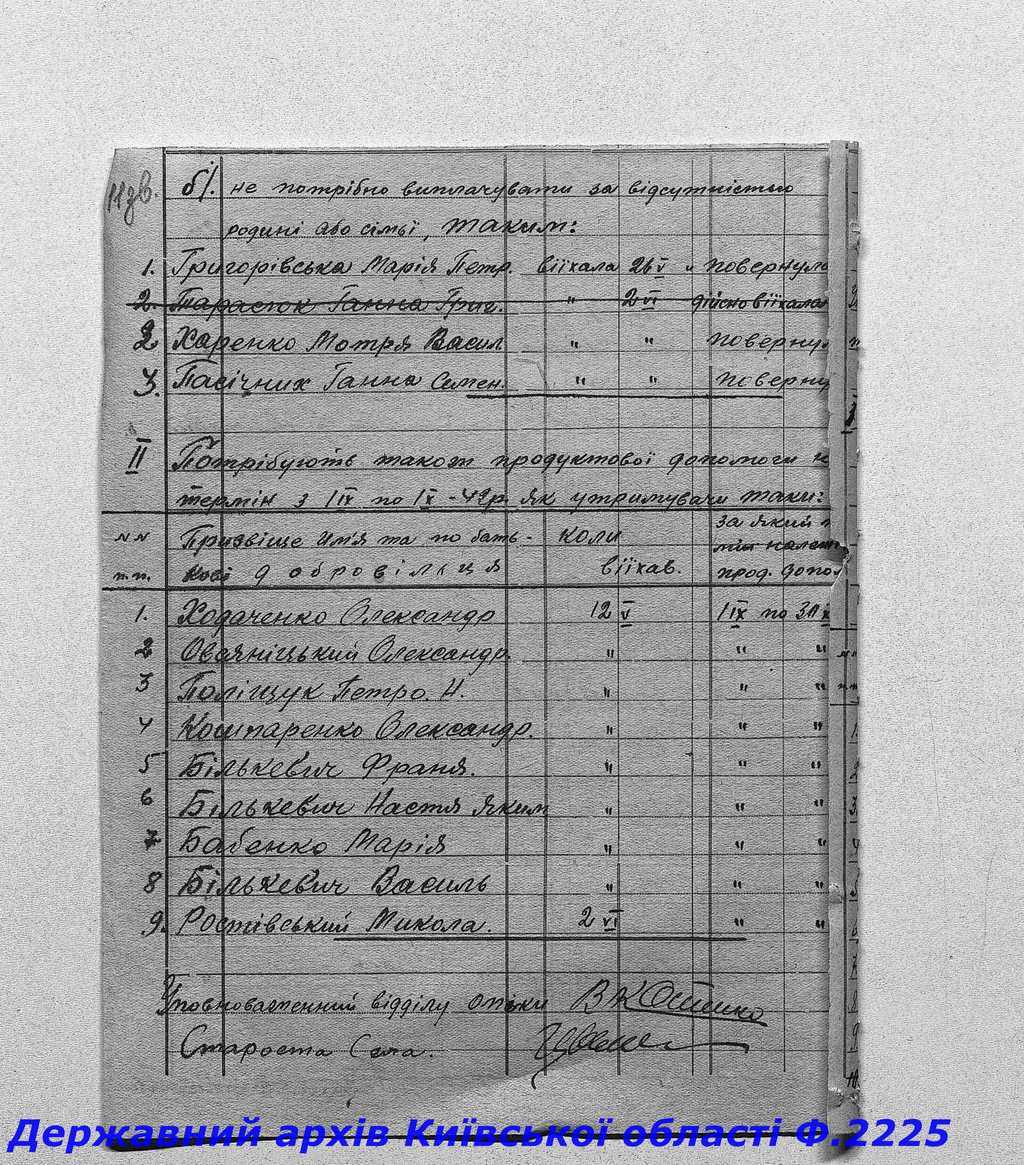 11зв.
б). не потрібно виплачувати за відсутністю
родині або сімьї, таким:
1. Григорівська Марія Петр. віїхала 26 V " повернула
2. Тарасюк Ганна Григ. " 2 VI дійсно віїхала
2 Харенко Мотря Васил " " поверну
3. Пасічник Ганна Семен. " " поверну
II Потрібують також продуктової допомоги
термін з 1 IX по 1 X -42р. як утримувачи таки:
№№ Призвіще имя та по бать- коли за який
п.п. кові добровільця віїхав. прод. допо
1. Ходаченко Олександр 12 V 1 IX по 30 IX
2 Овсяніцький Олександр. " " "
3 Поліщук Петро. Н. " " "
4 Коштаренко Олександр. " " "
5 Бількевич Франя. " " "
6 Бількевич Настя Яким " " "
7 Бабенко Марія " " "
8 Бількевич Василь " " "
9. Ростівський Микола. 2 VI " "
Уповноваженний відділу опіки
Староста Села.
Державний архів Київської області Ф.2225